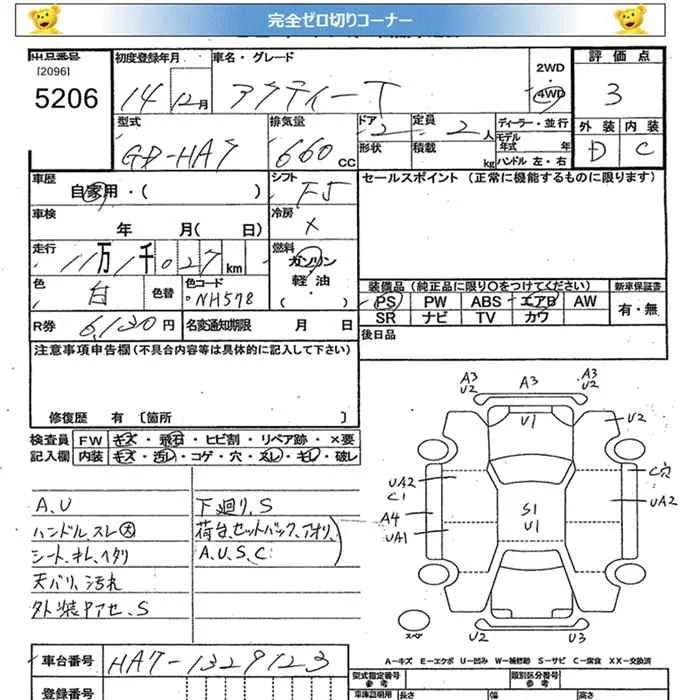 完全ゼロ切りコーナー
出品番号 初度登録年月 車名・グレード 評価点
[2096]
5206
14 12月 アクティー T 2WD ・ 4WD 3
型式 排気量 ドア 2 定員 2人 ディーラー・並行 外装 内装
GD-HA7 660cc 形状 積載 kg モデル年式 年 D C
ハンドル 左・右
車歴 自家用・( ) シフト F5 セールスポイント (正常に機能するものに限ります)
車検 年 月( 日) 冷房 ×
走行 11万1千027km 燃料 ガソリン
軽油
・( )
色 白 色替 色コード NH578 装備品(純正品に限り○をつけてください) 新車保証書
PS PW ABS エアB AW 有・無
R券 6,130円 名変通知期限 月 日 SR ナビ TV カワ
注意事項申告欄(不具合内容等は具体的に記入して下さい) 後日品
修復歴 有 [箇所 ]
検査員 FW キズ・飛石・ヒビ割・リペア跡・×要
記入欄 内装 キズ・汚レ・コゲ・穴・スレ・キレ・破レ
A.U 下廻り.S
ハンドルスレ大 荷台.セットバック.アオリ
シート.キレ.ヘタリ A.U.S.C
天バリ.汚れ
外装Pアセ.S
A3 U2 A3 A3 U2
U1 U2
UA2 C1 C穴
A4 S1 U1 UA2
UA1
スペア U2 U3
A-キズ E-エクボ U-凹み W-補修跡 S-サビ C-腐食 XX-交換済
車台番号 HA7-1329123 型式指定番号 参考 類別区分番号 参考
登録番号 車庫証明用 長さ 幅 高さ